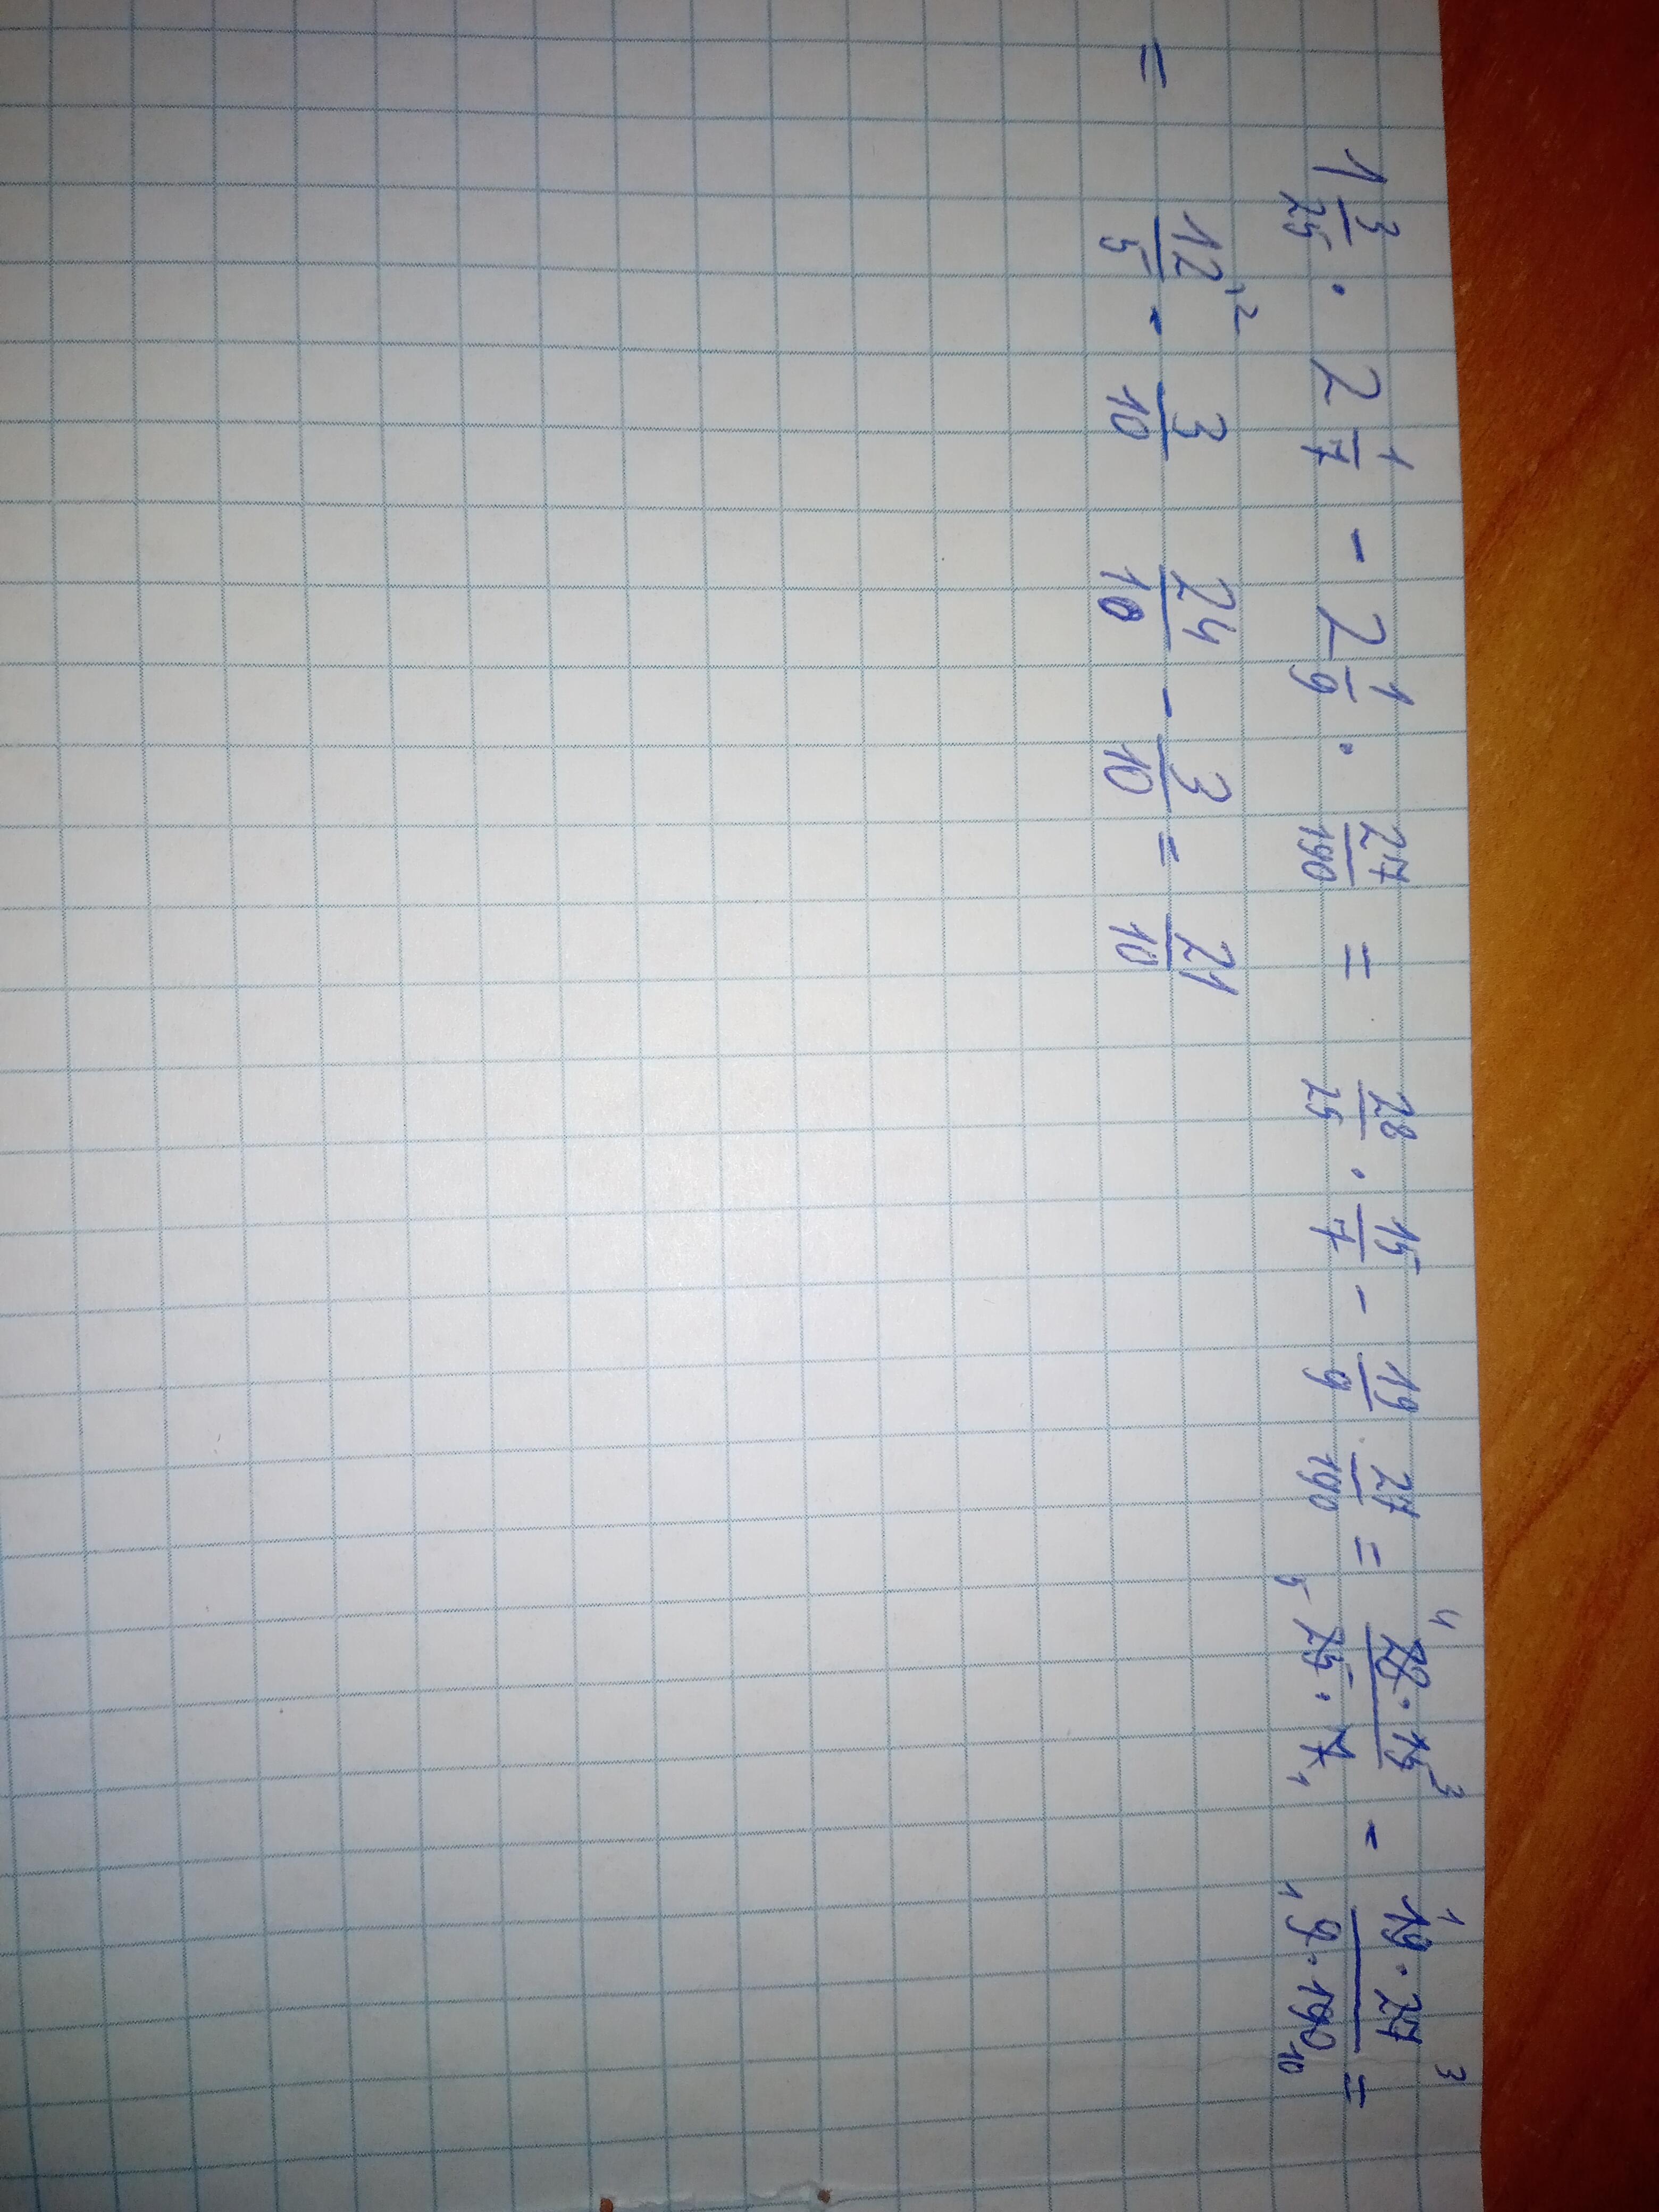 1 3/25 · 2 1/7 - 2 1/9 · 27/190 = 28/25 · 15/7 - 19/9 · 27/190 = 4 28 · 15 3 / 5 25 · 7 1 - 1 19 · 27 3 / 1 9 · 190 10 =
= 12/5 ·2 - 3/10 24/10 - 3/10 = 21/10